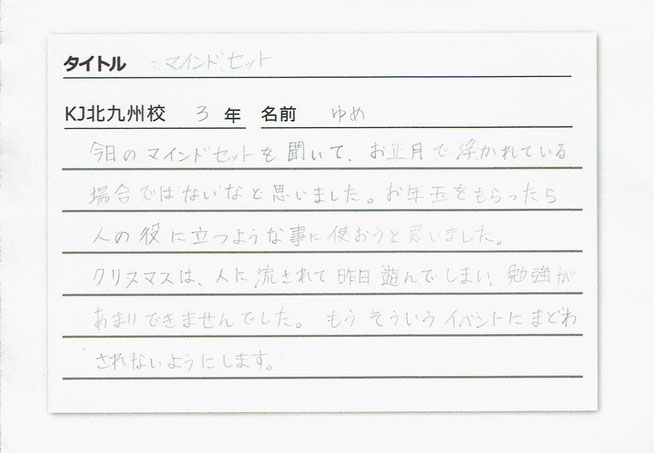 タイトル マインドセット
KJ北九州校 3 年 名前 ゆめ
今日のマインドセットを聞いて、お正月で浮かれている
場合ではないなと思いました。お年玉をもらったら
人の役に立つような事に使おうと思いました。
クリスマスは、人に流されて昨日遊んでしまい、勉強が
あまりできませんでした。もうそういうイベントにまどわ
されないようにします。